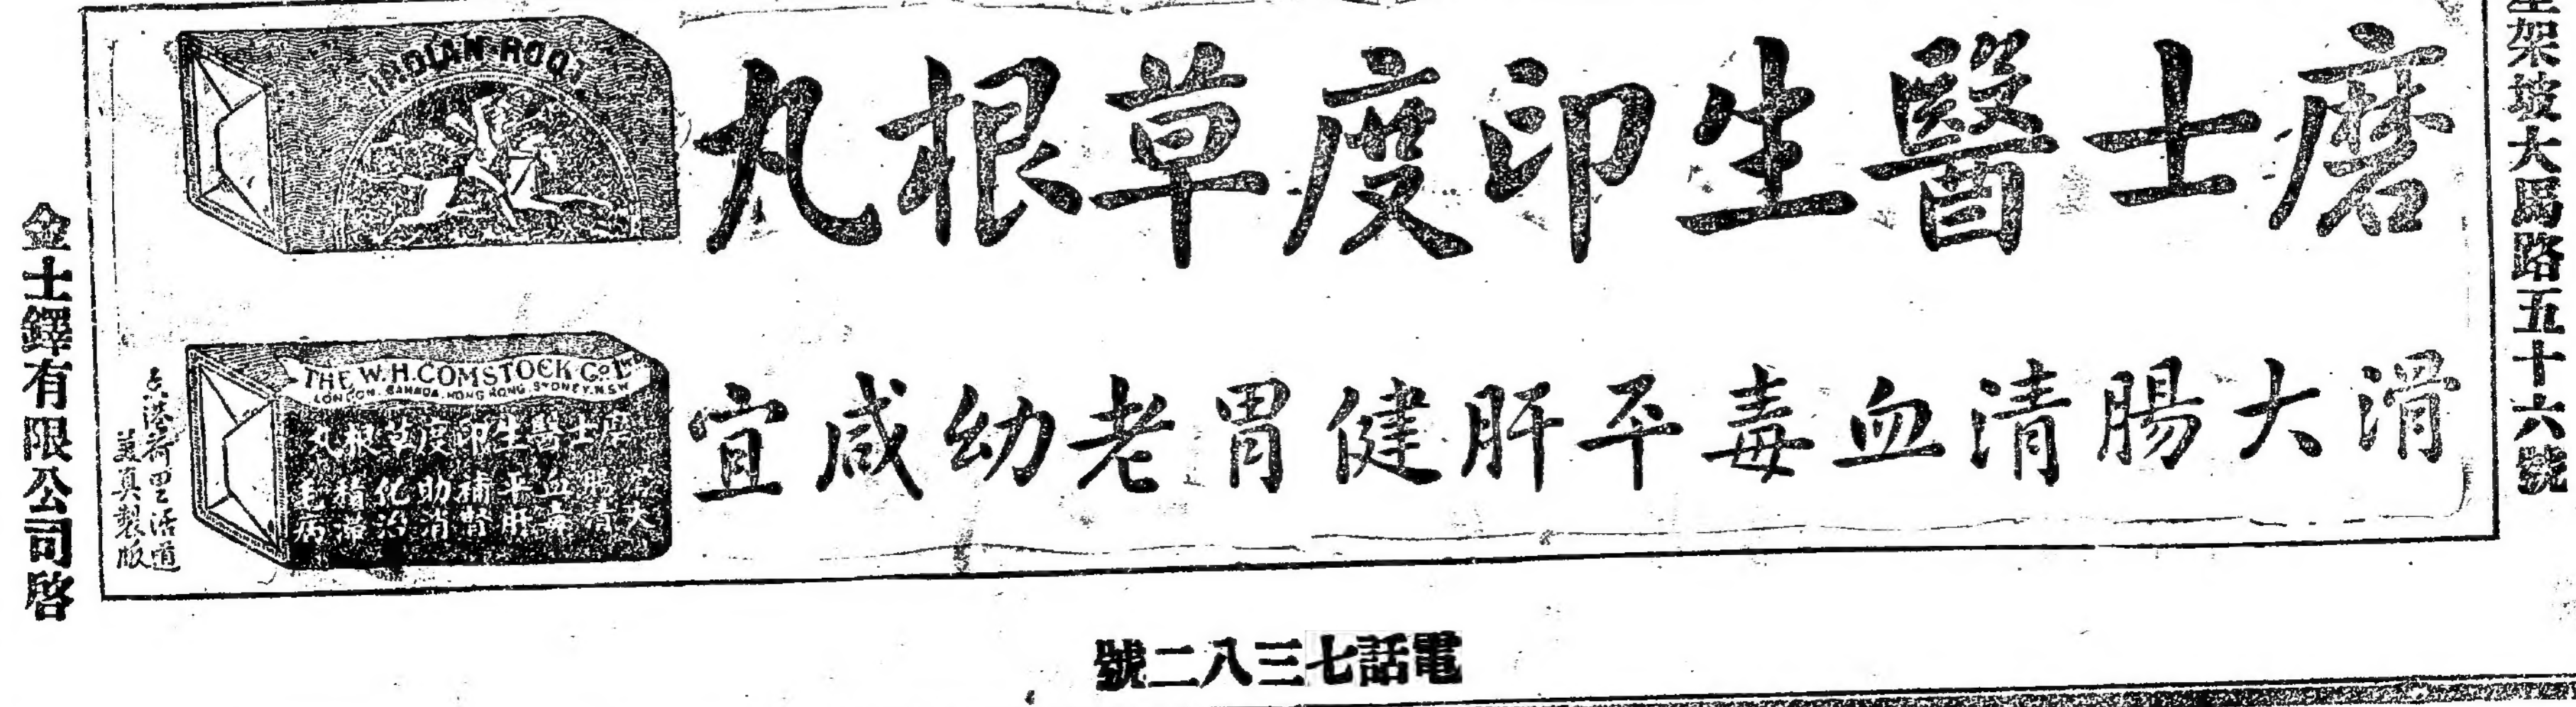 架坡大馬路五十六號
磨士醫生印度草根丸
滑大腸清血毒平肝健胃老幼咸宜
INDIAN ROOT
THE W.H.COMSTOCK Co LTD
LONDON. CANADA. HONG KONG. SYDNEY. N.S.W
士醫生印度草根丸
香港荷里活道
美真製版
金士鐸有限公司啓
電話七三八二號